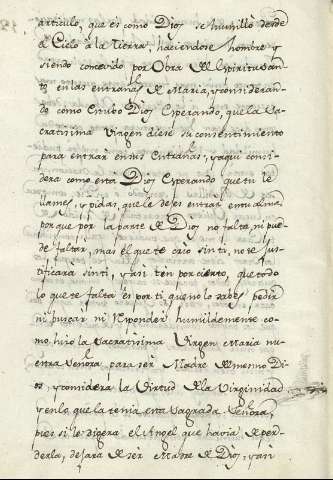 articulo, que es como Dios se humilló desde
el Cielo à la Tierra, haciendose hombre y
siendo concevido por Obra del Espiritu San-
to en las entrañas de Maria, y consideran-
do como estubo Dios Esperando, que la Sa-
cratisima Virgen diese su consentimiento
para entrar en sus Entrañas, y aqui consi-
dera como està Dios Esperando que tu le
llames, y pidas, que le dejes entrar en tu alma
porque por la parte de Dios no falta, ni pue-
de faltar, mas el que te crio sin ti, no te jus-
tificarà sin ti, y asi ten por cierto, que todo
lo que te falta es por ti, que no lo sabes pedir
ni buscar ni responder humildemente co-
mo hizo la Sacratisima Virgen Maria nu-
estra Señora para ser Madre del mesmo Di-
os y considera la Virtud de la Virginidad
y en lo que la tenia esta Sagrada Señora,
pues si le digera el Angel que havia de per-
derla, dejara de ser Madre de Dios, y asi